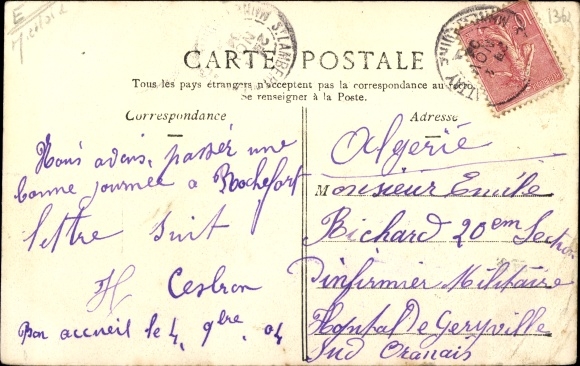 CARTE POSTALE
Tous les pays étrangers n'acceptent pas la correspondance au
Se renseigner à la Poste.
Correspondance
Nous avons, passér une
bonne journée a Rochefort
lettre suit
H Cesbron
Bon accueil le 4, 9bre, 04
Adresse
Algerie
Monsieur Emile
Richard 20em Section
D'infirmier Militaire
Hopital De Geryville
Sud Oranais
1362